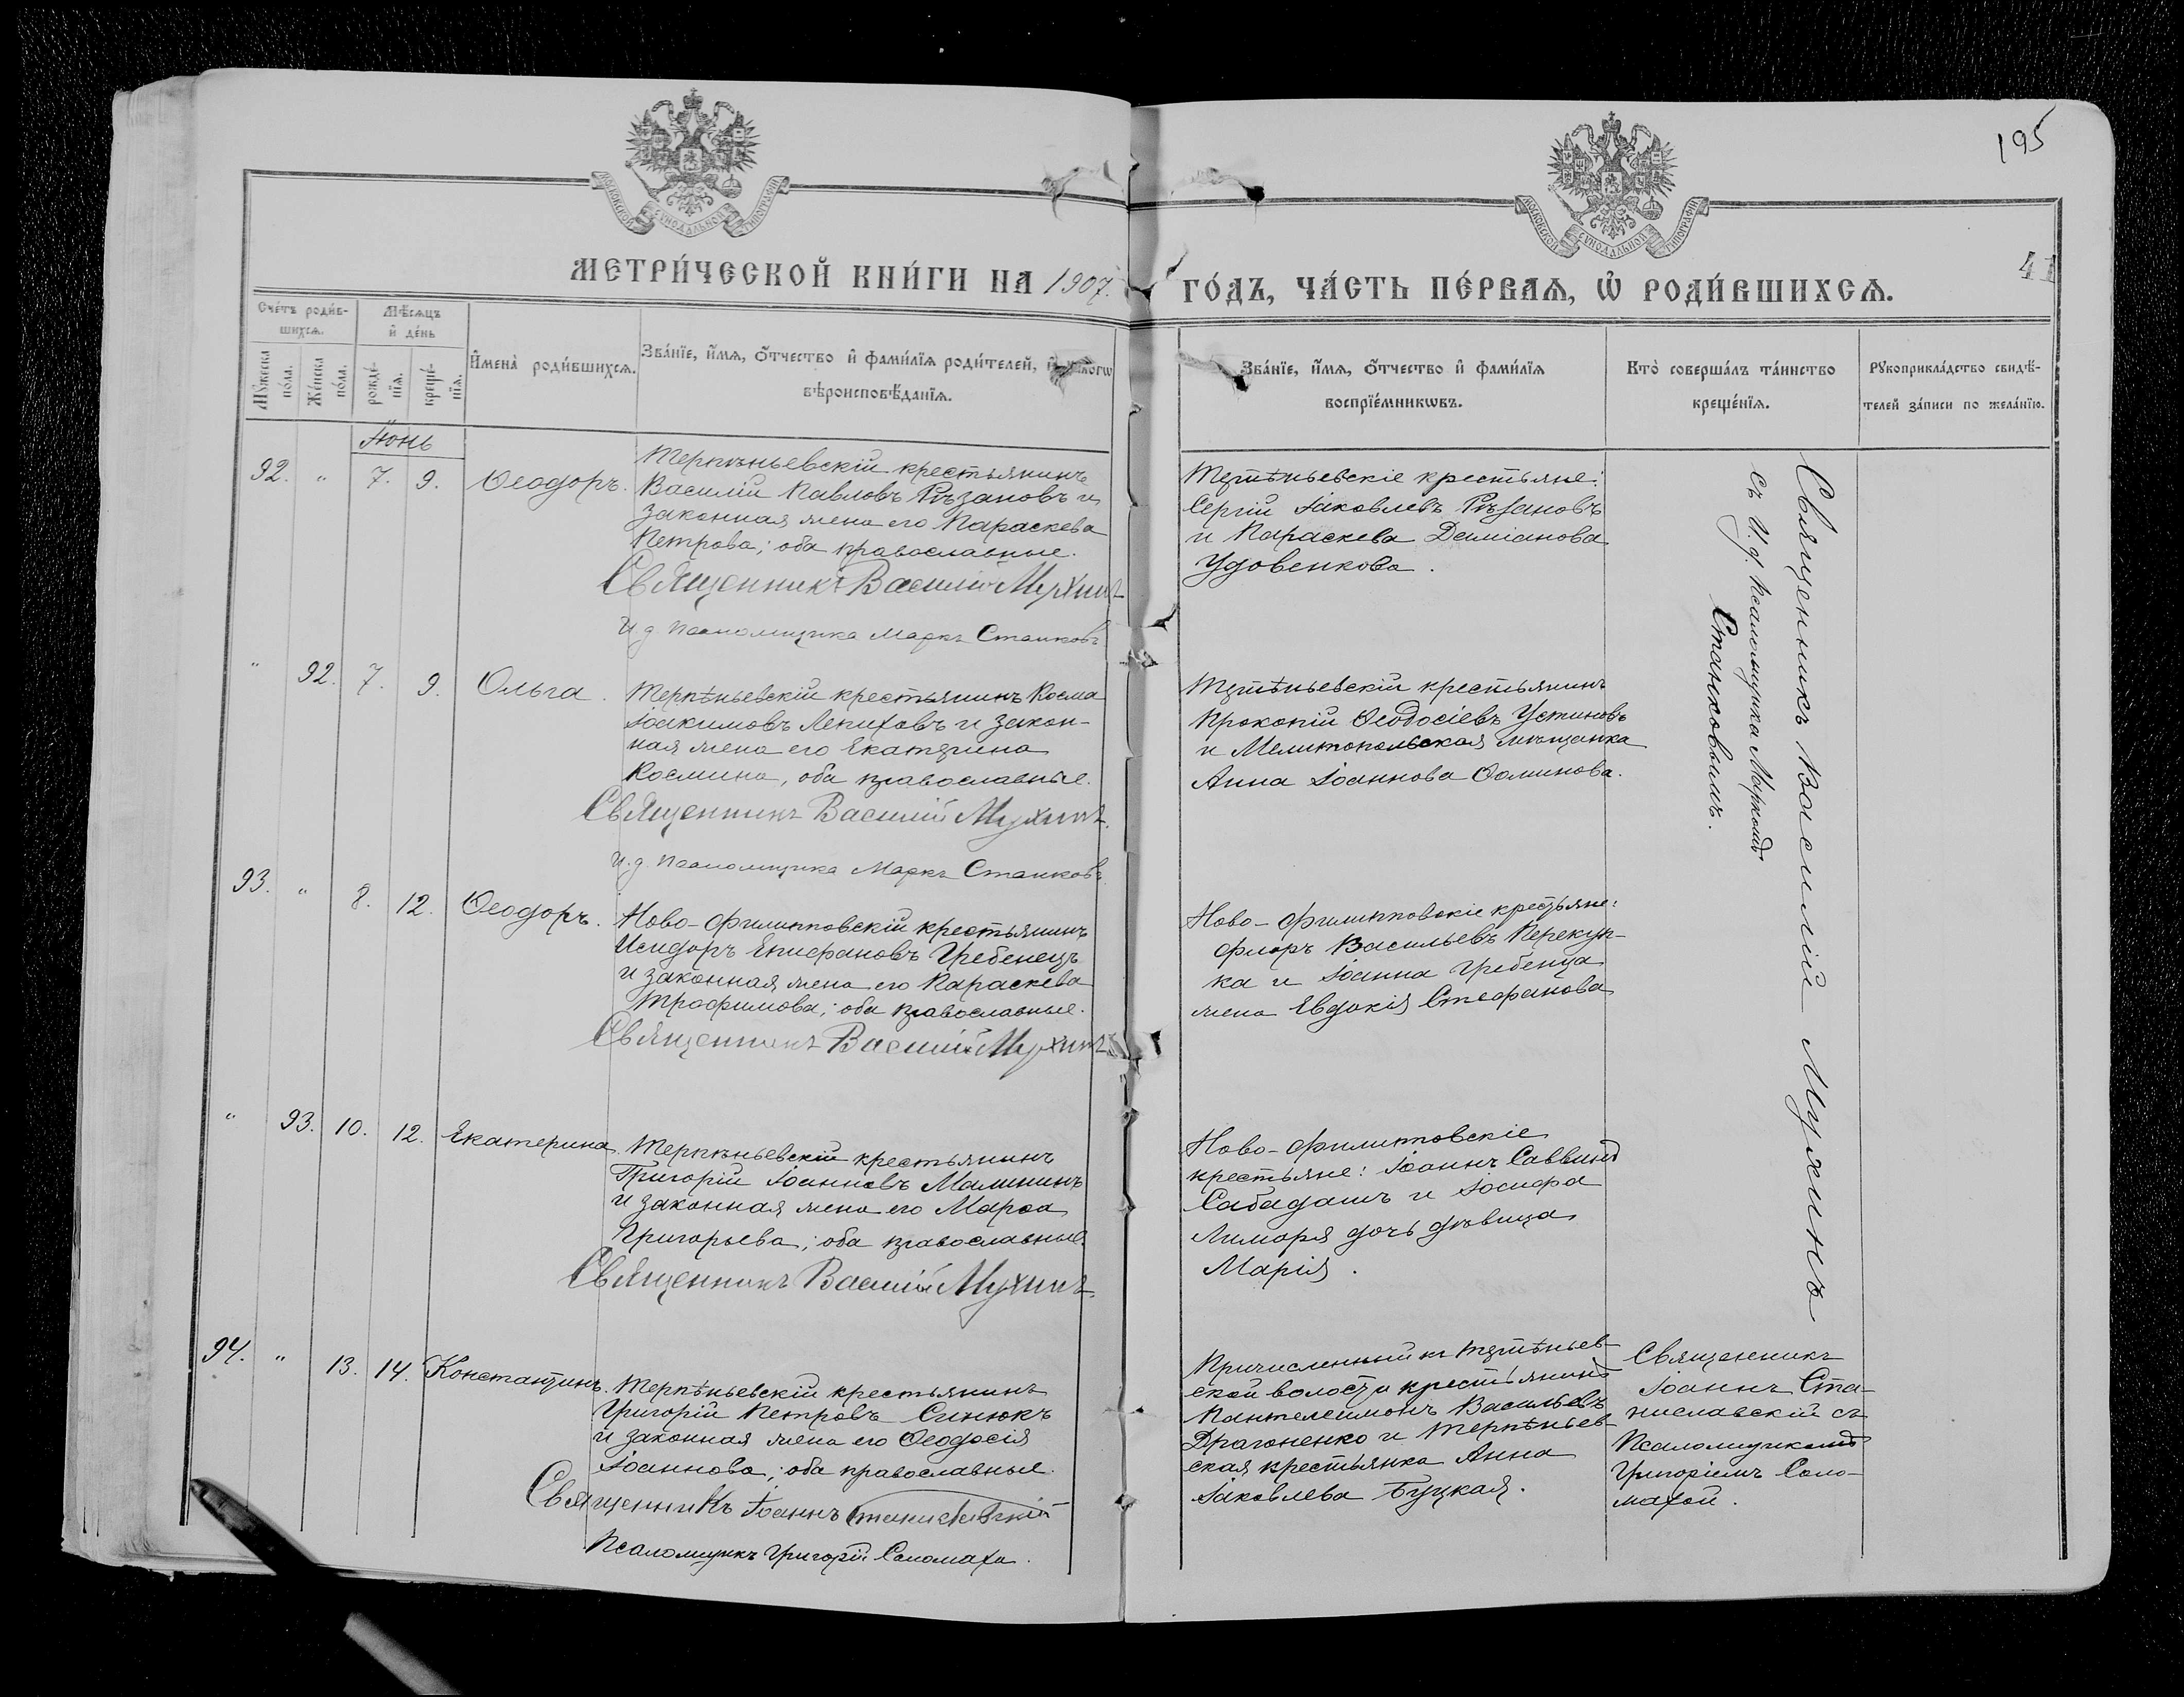 195
41
МОСКОВСКОЙ СѴНОДАЛЬНОЙ ТИПОГРАФІИ
МОСКОВСКОЙ СѴНОДАЛЬНОЙ ТИПОГРАФІИ
МЕТРИ́ЧЕСКОЙ КНИ́ГИ НА 1907.
ГО́ДЪ, ЧА́СТЬ ПЕ́РВАѦ, Ѽ РОДИ́ВШИХСѦ.
Сче́тъ роди́в-
шихсѧ.
Мꙋ́жеска
по́ла.
Же́нска
по́ла.
Мѣ́сѧцъ
и҆ де́нь
рожде́-
нїѧ.
креще́-
нїѧ.
И҆мена̀ роди́вшихсѧ.
Зва́нїе, и҆́мѧ, ѻ҆́тчество и҆ фами́лїѧ роди́телей, и҆
вѣроисповѣ́данїѧ.
Зва́нїе, и҆́мѧ, ѻ҆́тчество и҆ фами́лїѧ
воспрїе́мникѡвъ.
Кто̀ соверша́лъ та́инство
креще́нїѧ.
Рꙋкоприкла́дство свидѣ́-
телей за́писи по жела́нїю.
Іюнь
92. " 7. 9. Ѳеодоръ.
Терпѣньевскій крестьянинъ
Василій Павловъ Рѣзановъ и
законная жена его Параскева
Петрова; оба православные.
Священникъ Василій Мухинъ
И.д. псаломщика Маркъ Станковъ
Терпѣньевскіе крестьяне:
Сергій Іаковлевъ Рѣзановъ
и Параскева Даміанова
Удовенкова.
" 92. 7. 9. Ольга.
Терпѣньевскій крестьянинъ Косма
Іоакимовъ Лепиховъ и закон-
ная жена его Екатерина
Космина, оба православные.
Священникъ Василій Мухинъ.
И.д. псаломщика Маркъ Станковъ
Терпѣньевскій крестьянинъ
Прокопій Ѳеодосіевъ Устиновъ
и Мелитопольская мѣщанка
Анна Іоаннова Ѳоминова.
93. " 8. 12. Ѳеодоръ.
Ново-Филипповскій крестьянинъ
Исидоръ Епифановъ Гребенецъ
и законная жена его Параскева
Трофимова; оба православные.
Священникъ Василій Мухинъ
Ново-Филипповскіе крестьяне:
Флоръ Васильевъ Перекуп-
ка и Іоанна Гребенца
жена Евдокія Стефанова
" 93. 10. 12. Екатерина.
Терпѣньевскій крестьянинъ
Григорій Іоанновъ Малининъ
и законная жена его Марѳа
Григорьева; оба православные.
Священникъ Василій Мухинъ.
Ново-Филипповскіе
крестьяне: Іоаннъ Саввинъ
Сабадашъ и Іосифа
Лиморя дочь дѣвица
Марія.
Священникъ Василій Мухинъ
съ И.д. псаломщика Маркомъ
Станковымъ.
94. " 13. 14. Константинъ.
Терпѣньевскій крестьянинъ
Григорій Петровъ Синюкъ
и законная жена его Ѳеодосія
Іоаннова; оба православные.
Священникъ Іоаннъ Станиславскій
Псаломщикъ Григорій Соломаха.
Причисленный къ Терпѣньев-
ской волости крестьянинъ
Пантелеимонъ Васильевъ
Драгоненко и Терпѣньев-
ская крестьянка Анна
Іаковлева Буцкая.
Священникъ
Іоаннъ Ста-
ниславскій съ
Псаломщикомъ
Григоріемъ Соло-
махой.